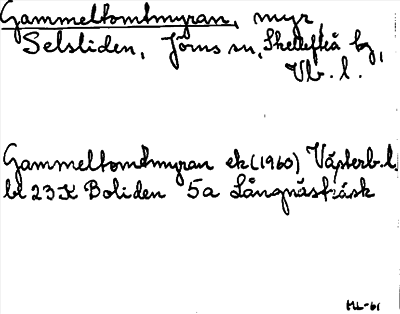 Gammeltomtmyran, myr
Selsliden, Jörns sn, Skellefteå kg,
Vb. l.
Gammeltomtmyran ek (1960) Västerb. l.
bl 23 K Boliden 5a Långnästräsk
ML-61